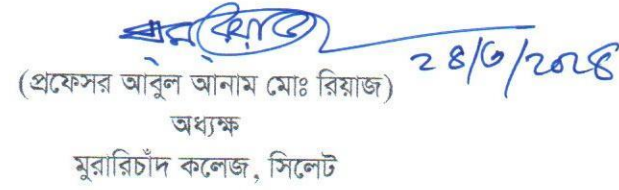 ২৪/৩/২০২৪
(প্রফেসর আবুল আনাম মোঃ রিয়াজ)
অধ্যক্ষ
মুরারিচাঁদ কলেজ, সিলেট